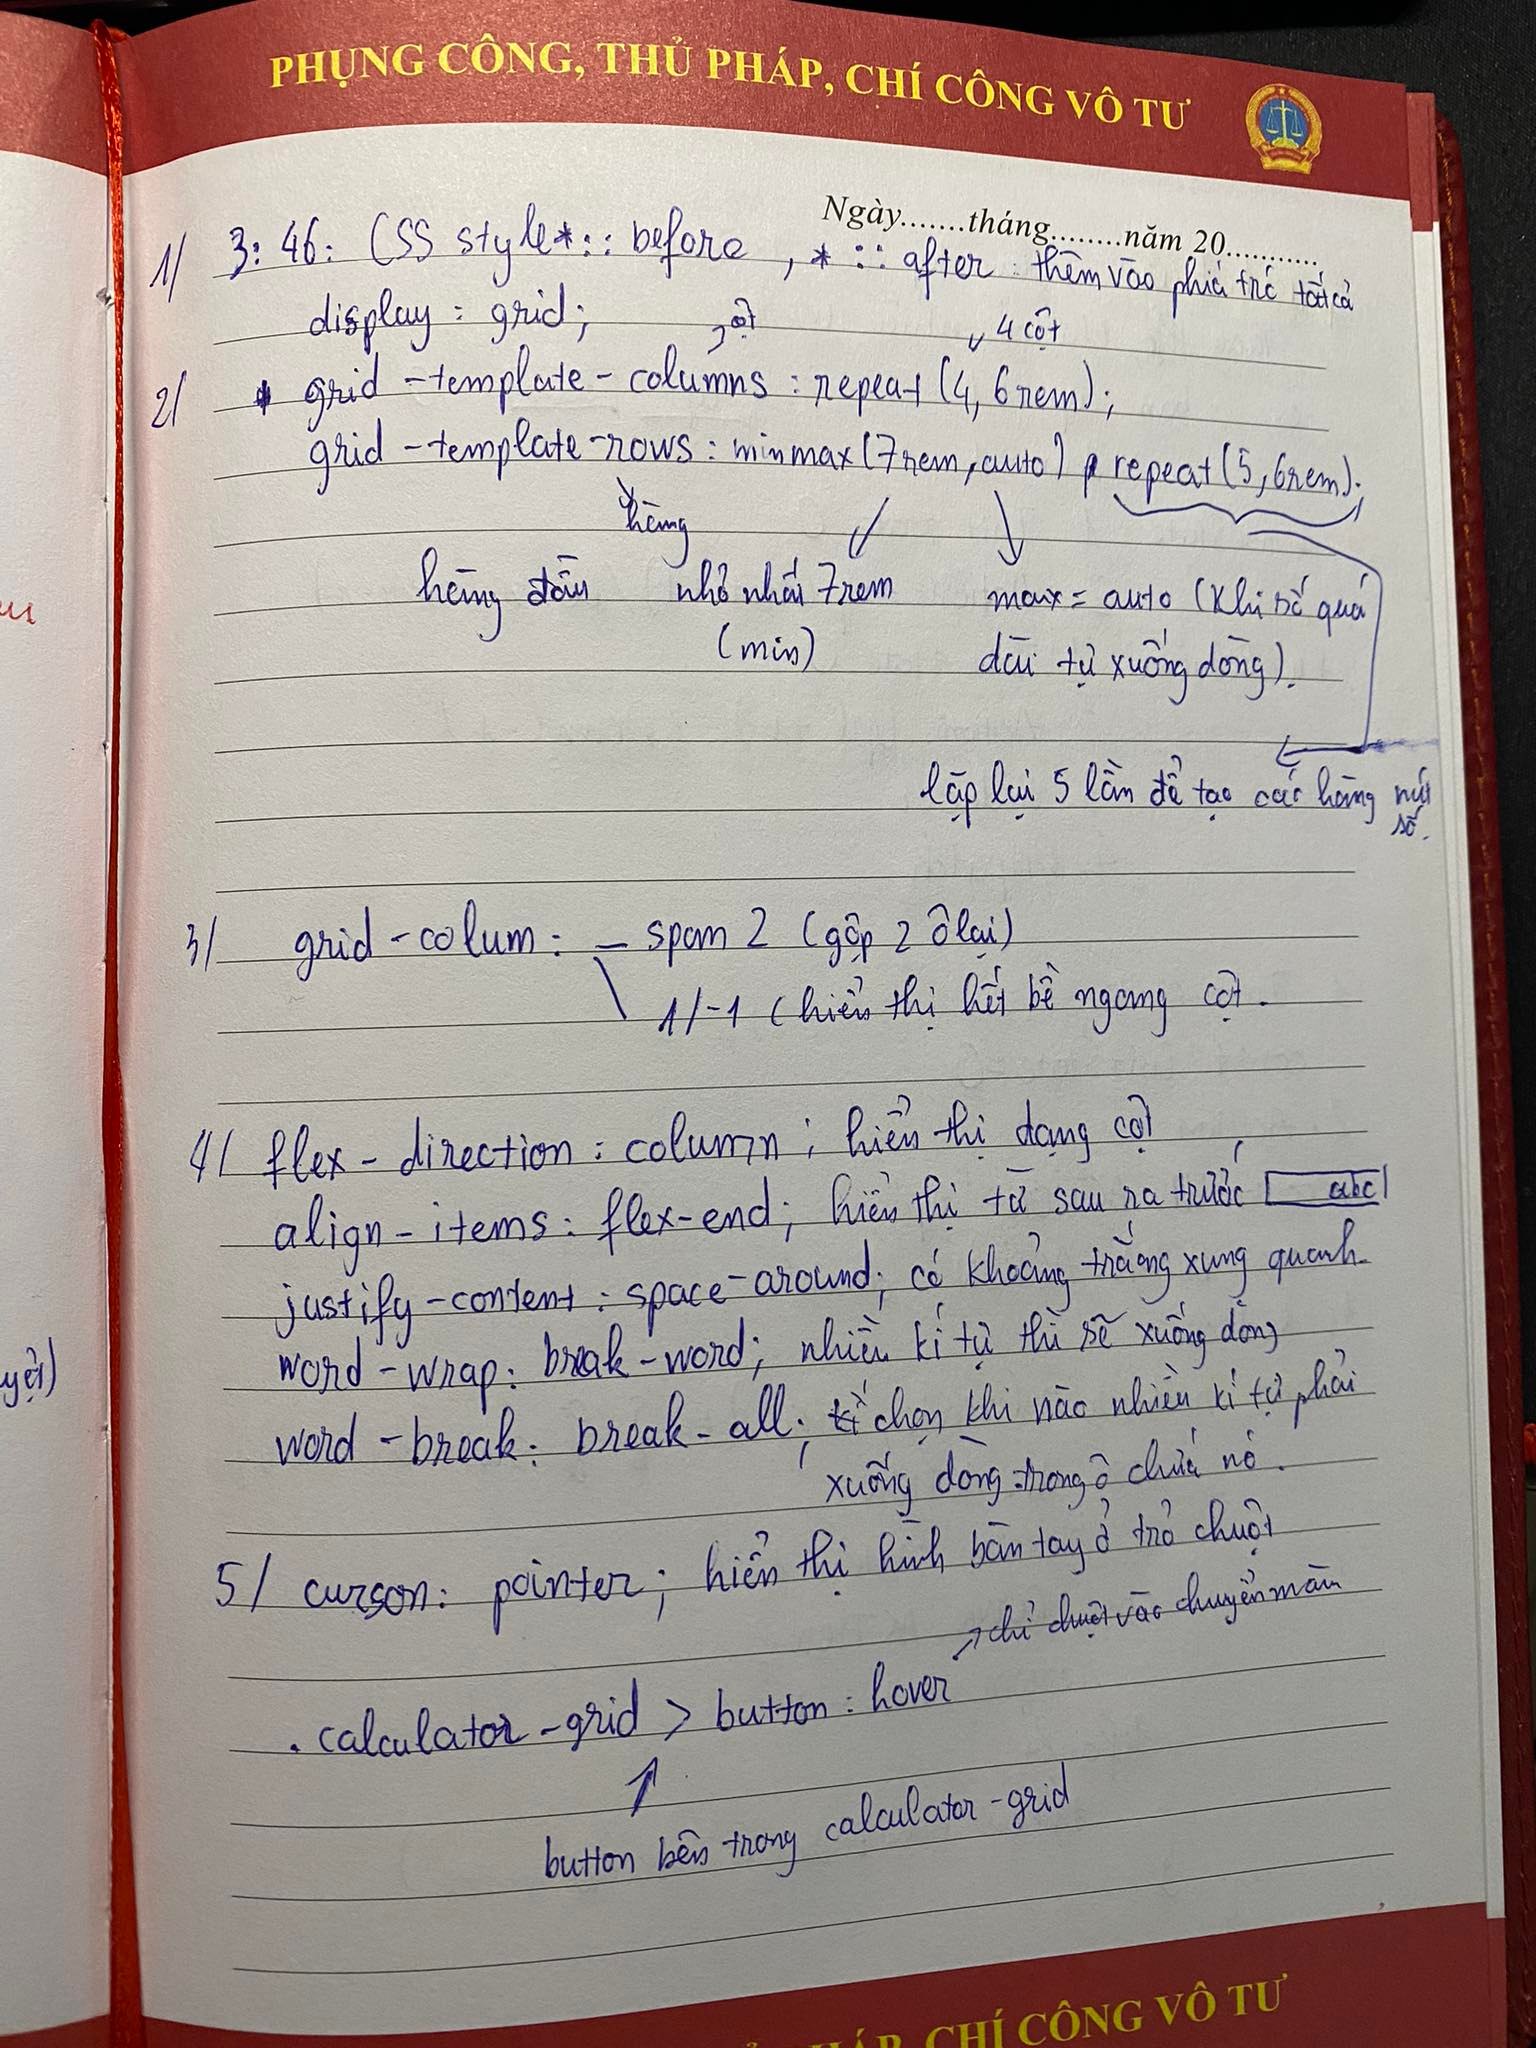 PHỤNG CÔNG, THỦ PHÁP, CHÍ CÔNG VÔ TƯ
Ngày.......tháng........năm 20...........
1/ 3:46: CSS style *:: before , *:: after : thêm vào phía trc tất cả
display : grid;
cột
4 cột
2/ * grid - template - columns : repeat (4, 6rem);
grid - template - rows : minmax (7rem, auto) , repeat (5, 6rem).
hàng
hàng đầu nhỏ nhất 7rem max = auto (Khi số quá
(min) dài tự xuống dòng).
lặp lại 5 lần để tạo các hàng nút
số.
3/ grid - colum : - span 2 (gộp 2 ô lại)
1/-1 (hiển thị hết bề ngang cột.
4/ flex - direction : column ; hiển thị dạng cột
align - items : flex-end; hiển thị từ sau ra trước abc
justify - content : space - around; có khoảng trắng xung quanh.
word - wrap : break - word; nhiều kí tự thì sẽ xuống dòng
word - break : break - all; chọn khi nào nhiều kí tự phải
xuống dòng trong ô chứa nó.
5/ curson : pointer ; hiển thị hình bàn tay ở trỏ chuột
chỉ chuột vào chuyển màu
. calculator - grid > button : hover
button bên trong calculator - grid
PHÁP, CHÍ CÔNG VÔ TƯ
yệt)